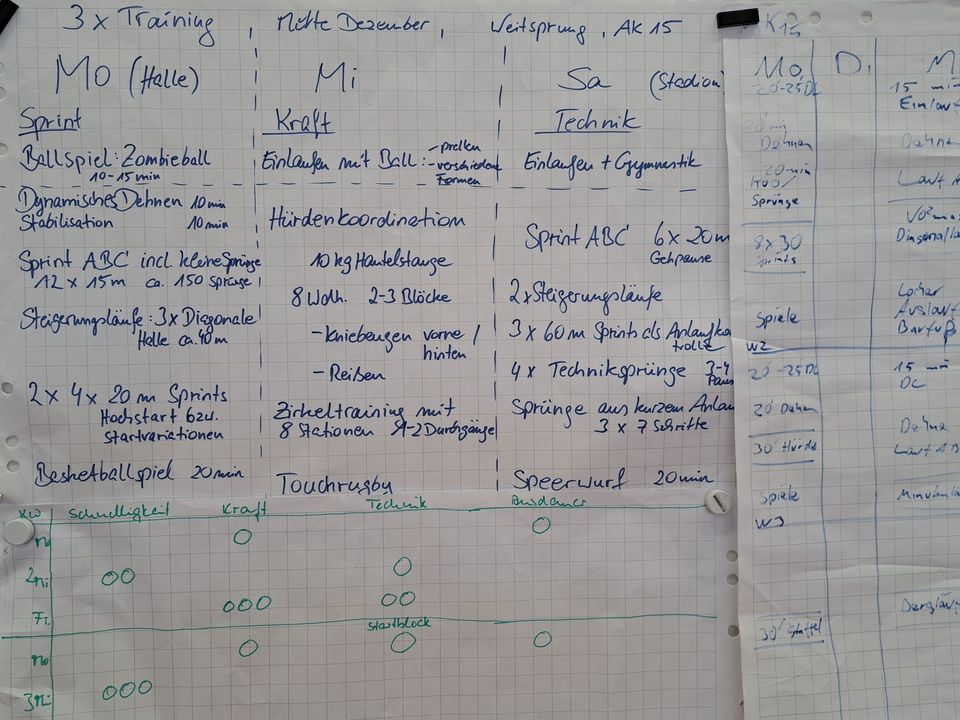 3 x Training , Mitte Dezember, Weitsprung, AK 15
Mo (Halle)
Sprint
Ballspiel: Zombieball
10-15 min
Dynamisches Dehnen 10 min
Stabilisation 10 min
Sprint ABC incl. kleine Sprünge
12 x 15 m ca. 150 Sprünge
Steigerungsläufe: 3 x Diagonale
Halle ca. 40 m
2 x 4 x 20 m Sprints
Hochstart bzw.
Startvariationen
Basketballspiel 20 min
Mi
Kraft
Einlaufen mit Ball: - prellen
- verschiedene
Formen
Hürdenkoordination
10 kg Hantelstange
8 Wdh. 2-3 Blöcke
- Kniebeugen vorne /
hinten
- Reißen
Zirkeltraining mit
8 Stationen 1-2 Durchgänge
Touchrugby
Sa (Stadion)
Technik
Einlaufen + Gymnastik
Sprint ABC 6 x 20 m
Gehpause
2 x Steigerungsläufe
3 x 60 m Sprints als Anlaufko
trolle
4 x Techniksprünge 3-4
Paus
Sprünge aus kurzem Anlau
3 x 7 Schritte
Speerwurf 20 min
KW Schnelligkeit Kraft Technik Ausdauer
Mo
2 Mi
Fr.
Startblock
Mo
3 Mi
K13
Mo, Di M
20-25 DL 15 min
Einlauf
20 min
Dehnen Dehne
20 min
Sprünge
Lauf A
8 x 30
Sprints
Diagonalla
Spiele
Locker
Auslauf
Barfuß
W2
20-25 DL 15 min
DL
20' Dehnen Dehne
30' Hürde Lauf AB
Spiele
W3
30' Staffel
Bergläuf